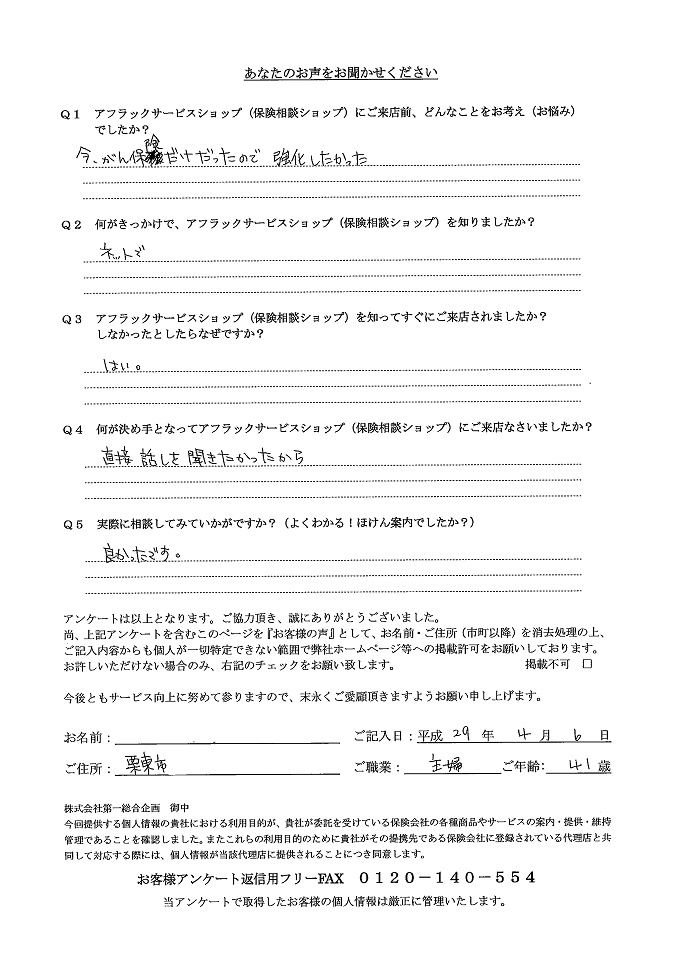 あなたのお声をお聞かせください
Q1 アフラックサービスショップ（保険相談ショップ）にご来店前、どんなことをお考え（お悩み）
でしたか？
今、がん保険だけだったので 強化したかった
Q2 何がきっかけで、アフラックサービスショップ（保険相談ショップ）を知りましたか？
ネットで
Q3 アフラックサービスショップ（保険相談ショップ）を知ってすぐにご来店されましたか？
しなかったとしたらなぜですか？
はい。
Q4 何が決め手となってアフラックサービスショップ（保険相談ショップ）にご来店なさいましたか？
直接 話しを 聞きたかったから
Q5 実際に相談してみていかがですか？（よくわかる！ほけん案内でしたか？）
良かったです。
アンケートは以上となります。ご協力頂き、誠にありがとうございました。
尚、上記アンケートを含むこのページを『お客様の声』として、お名前・ご住所（市町以降）を消去処理の上、
ご記入内容からも個人が一切特定できない範囲で弊社ホームページ等への掲載許可をお願いしております。
お許しいただけない場合のみ、右記のチェックをお願い致します。 掲載不可 □
今後ともサービス向上に努めて参りますので、末永くご愛顧頂きますようお願い申し上げます。
お名前： ご記入日：平成 29 年 4 月 6 日
ご住所： 栗東市 ご職業： 主婦 ご年齢： 41 歳
株式会社第一総合企画 御中
今回提供する個人情報の貴社における利用目的が、貴社が委託を受けている保険会社の各種商品やサービスの案内・提供・維持
管理であることを確認しました。またこれらの利用目的のために貴社がその提携先である保険会社に登録されている代理店と共
同して対応する際には、個人情報が当該代理店に提供されることにつき同意します。
お客様アンケート返信用フリーFAX 0120－140－554
当アンケートで取得したお客様の個人情報は厳正に管理いたします。